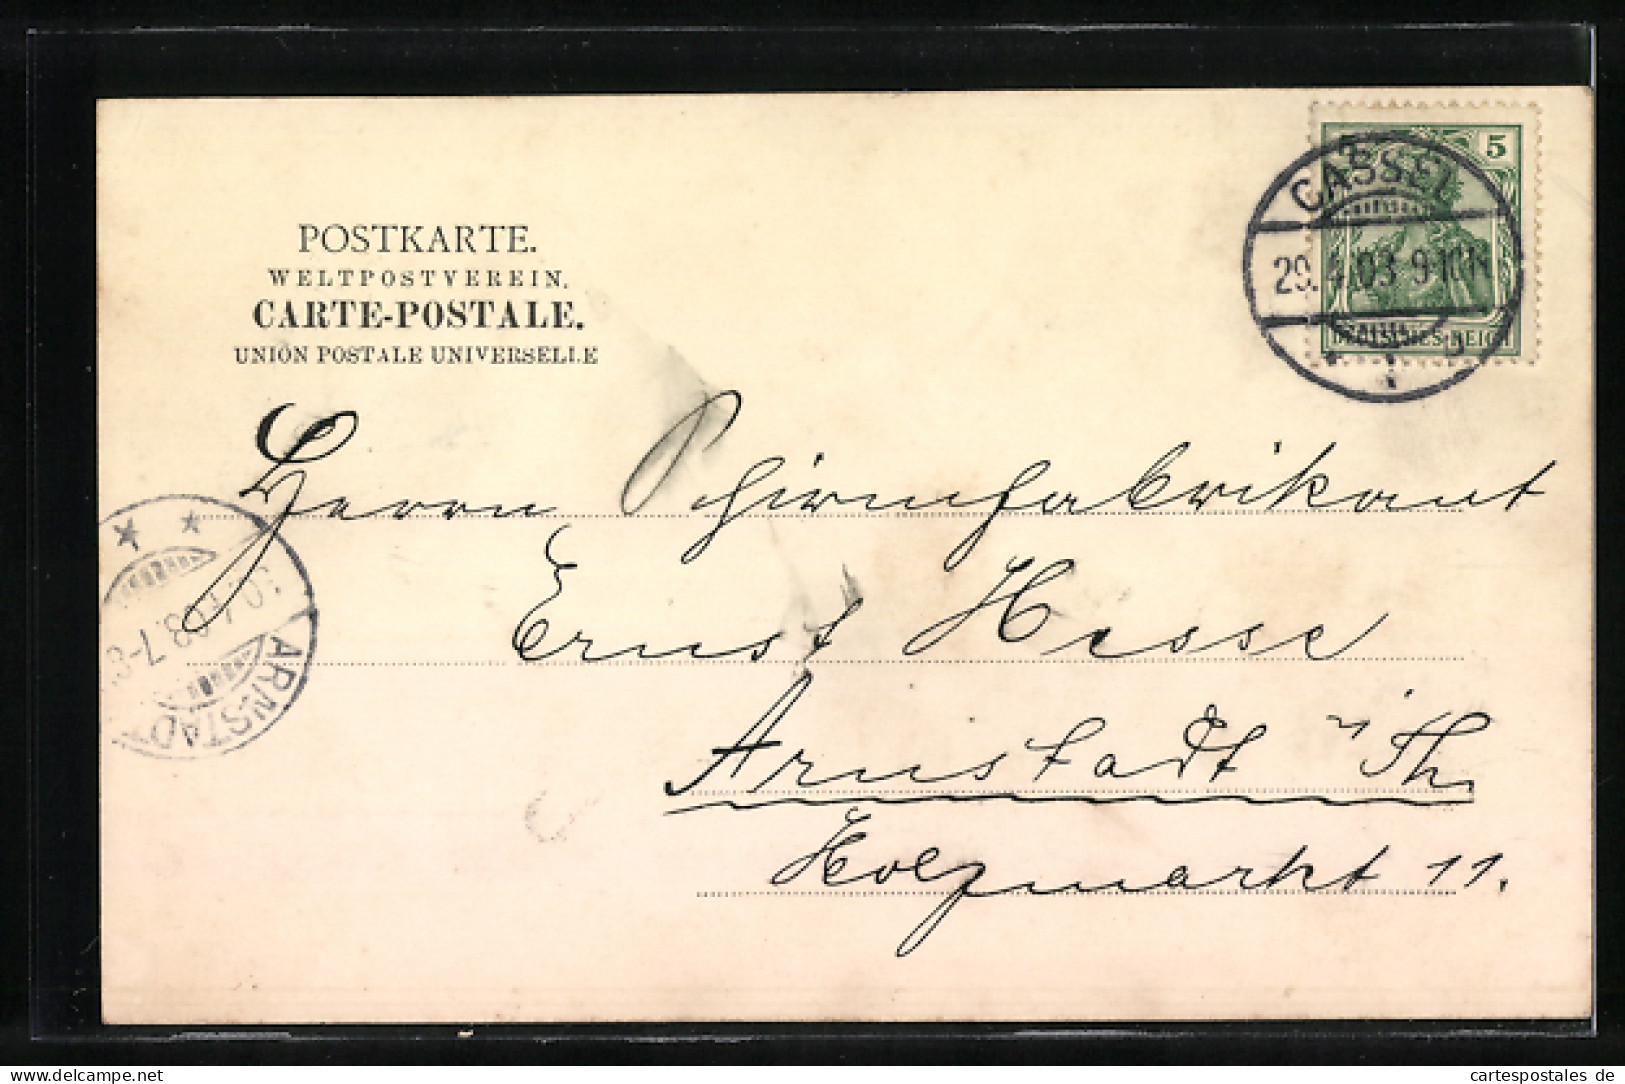 POSTKARTE.
WELTPOSTVEREIN.
CARTE-POSTALE.
UNION POSTALE UNIVERSELLE
5 5
CASSEL
29.4.03 9-10N
DEUTSCHES REICH
Herrn Schirmfabrikant
Ernst Hesse
Arnstadt i/Th.
Holzmarkt 11.
ARNSTADT
30.4.03.7-8
hosted by DELCAMPE
cartespostales de